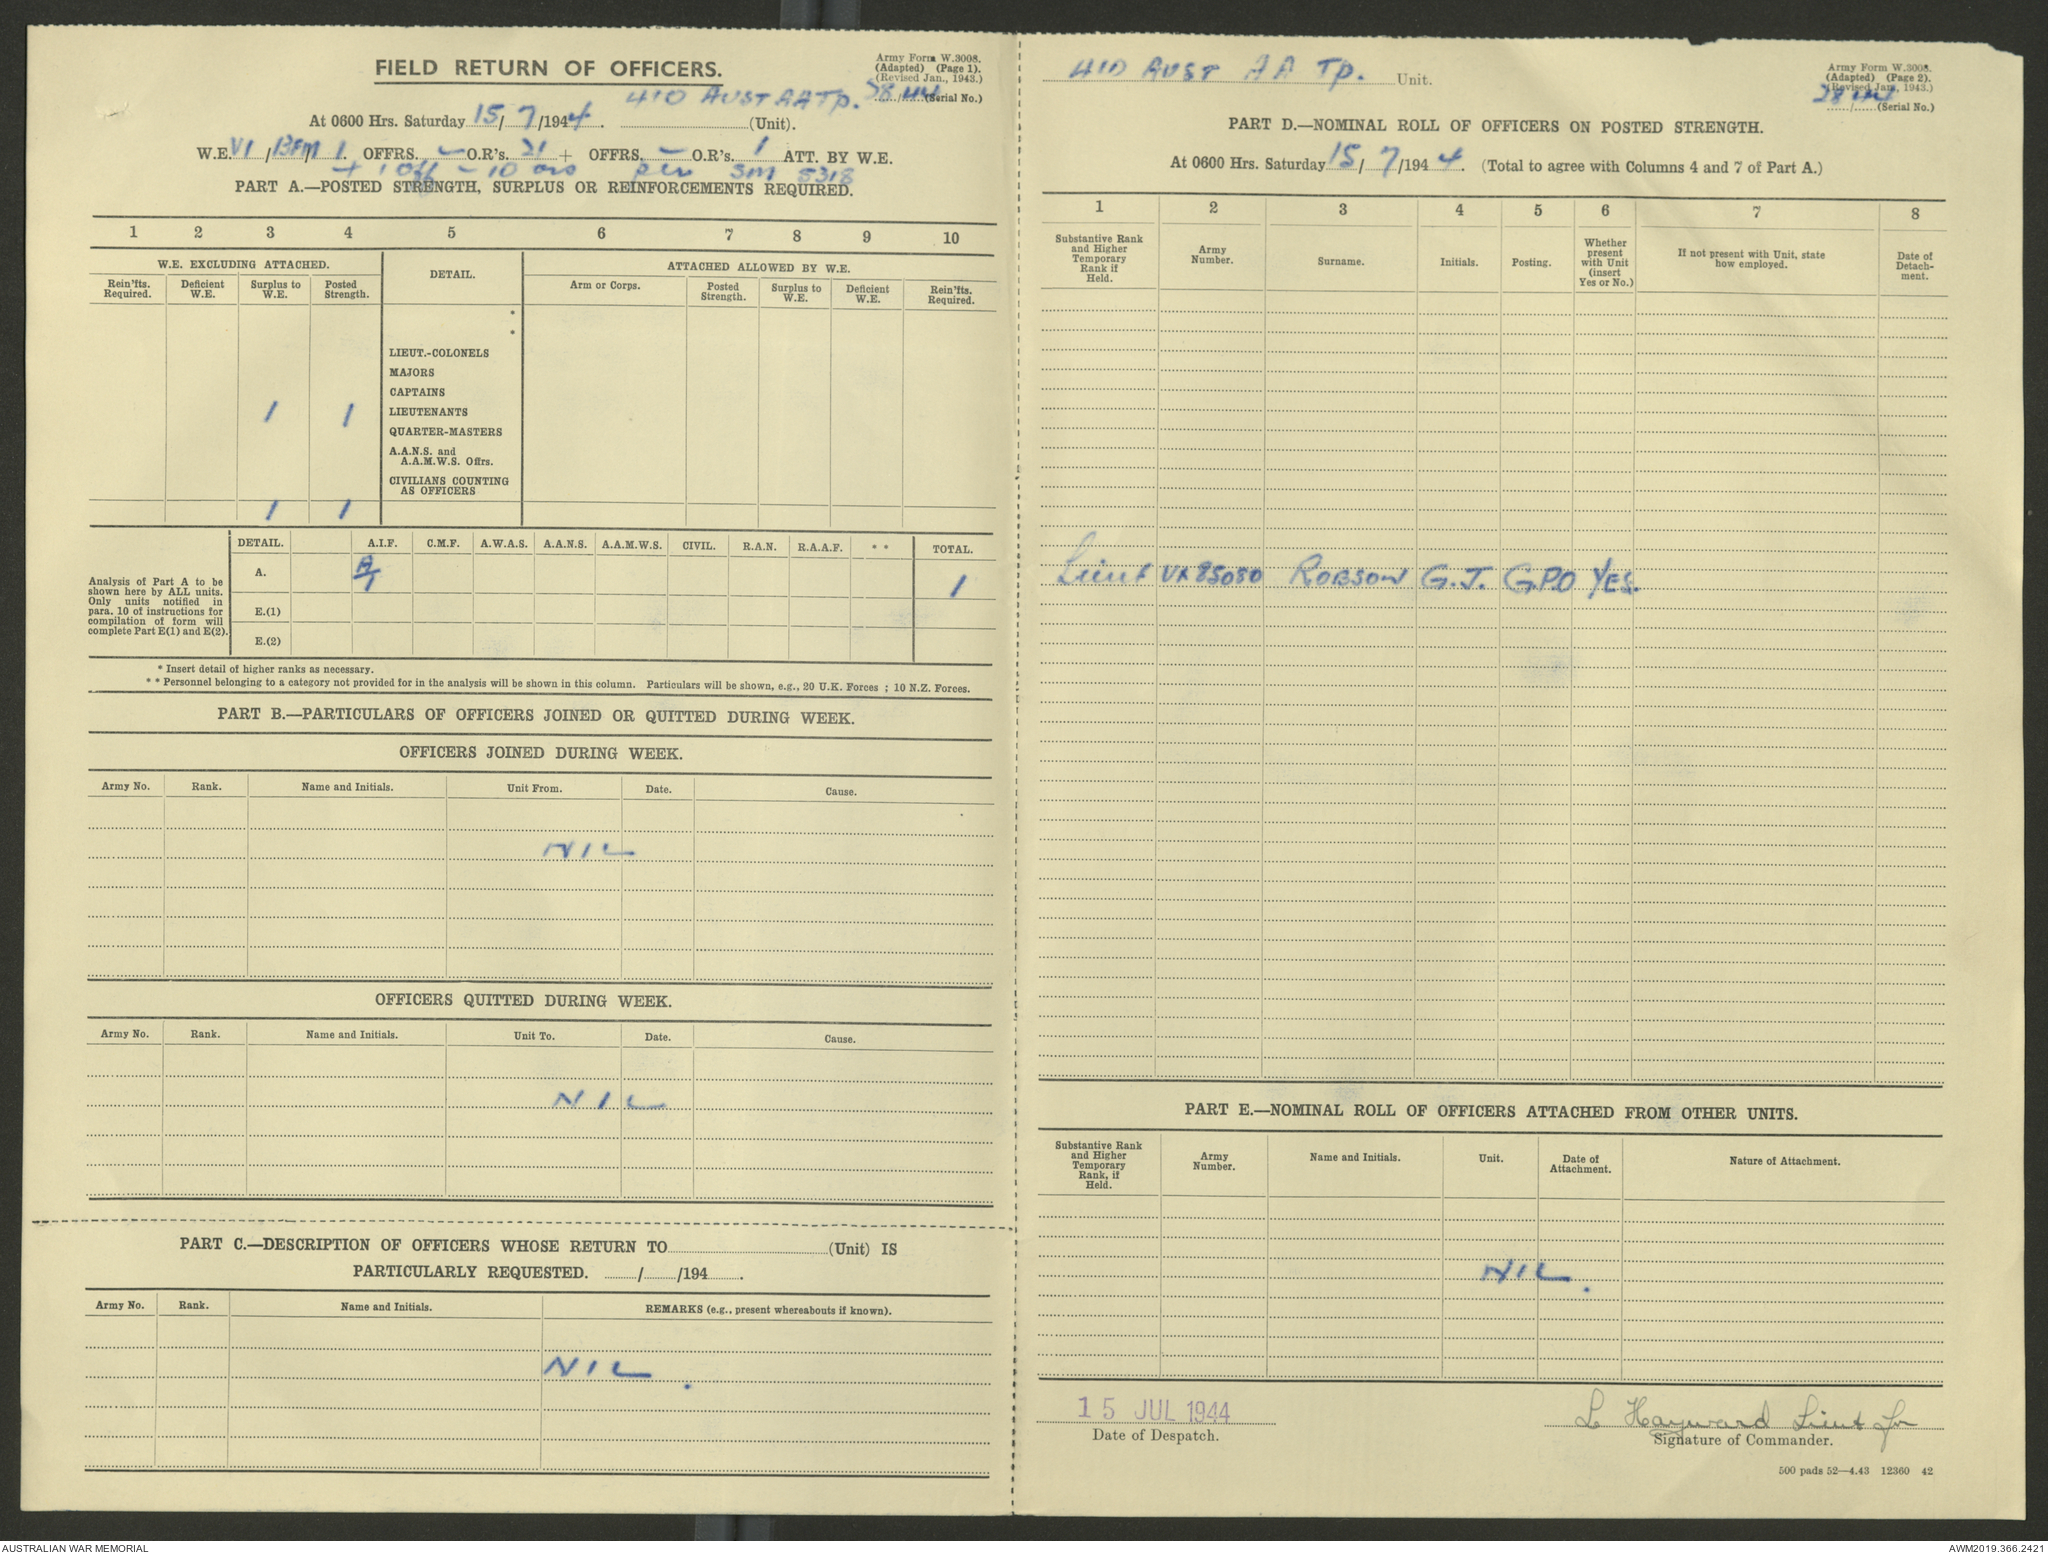 FIELD RETURN OF OFFICERS.
Army Form W.3008.
(Adapted) (Page 1).
(Revised Jan., 1943.)
28/44 (Serial No.)
At 0600 Hrs. Saturday 15/7/1944. 410 AUST AA Tp. (Unit).
W.E. VI / / 1. OFFRS. – O.R's. 21 + OFFRS. – O.R's. 1 ATT. BY W.E.
+ 1 Off – 10 ors per SM 5318
PART A.—POSTED STRENGTH, SURPLUS OR REINFORCEMENTS REQUIRED.
1 2 3 4 5 6 7 8 9 10
W.E. EXCLUDING ATTACHED. DETAIL. ATTACHED ALLOWED BY W.E.
Rein'fts. Required. Deficient W.E. Surplus to W.E. Posted Strength. Arm or Corps. Posted Strength. Surplus to W.E. Deficient W.E. Rein'fts. Required.
*
*
LIEUT.-COLONELS
MAJORS
CAPTAINS
1 1 LIEUTENANTS
QUARTER-MASTERS
A.A.N.S. and
A.A.M.W.S. Offrs.
CIVILIANS COUNTING
AS OFFICERS
1 1
DETAIL. A.I.F. C.M.F. A.W.A.S. A.A.N.S. A.A.M.W.S. CIVIL. R.A.N. R.A.A.F. * * TOTAL.
Analysis of Part A to be
shown here by ALL units.
Only units notified in
para. 10 of instructions for
compilation of form will
complete Part E(1) and E(2).
A. A/1 1
E.(1)
E.(2)
* Insert detail of higher ranks as necessary.
* * Personnel belonging to a category not provided for in the analysis will be shown in this column. Particulars will be shown, e.g., 20 U.K. Forces ; 10 N.Z. Forces.
PART B.—PARTICULARS OF OFFICERS JOINED OR QUITTED DURING WEEK.
OFFICERS JOINED DURING WEEK.
Army No. Rank. Name and Initials. Unit From. Date. Cause.
NIL
OFFICERS QUITTED DURING WEEK.
Army No. Rank. Name and Initials. Unit To. Date. Cause.
NIL
PART C.—DESCRIPTION OF OFFICERS WHOSE RETURN TO (Unit) IS
PARTICULARLY REQUESTED. / /194 .
Army No. Rank. Name and Initials. REMARKS (e.g., present whereabouts if known).
NIL.
410 AUST AA Tp. Unit.
Army Form W.3008.
(Adapted) (Page 2).
(Revised Jan., 1943.)
28/44 (Serial No.)
PART D.—NOMINAL ROLL OF OFFICERS ON POSTED STRENGTH.
At 0600 Hrs. Saturday 15/7/1944. (Total to agree with Columns 4 and 7 of Part A.)
1 2 3 4 5 6 7 8
Substantive Rank and Higher Temporary Rank if Held. Army Number. Surname. Initials. Posting. Whether present with Unit (insert Yes or No.) If not present with Unit, state how employed. Date of Detach-ment.
Lieut VX85080 ROBSON G.J. GPO YES.
PART E.—NOMINAL ROLL OF OFFICERS ATTACHED FROM OTHER UNITS.
Substantive Rank and Higher Temporary Rank, if Held. Army Number. Name and Initials. Unit. Date of Attachment. Nature of Attachment.
NIL.
15 JUL 1944
Date of Despatch.
L Hayward Lieut for
Signature of Commander.
500 pads 52—4.43 12360 42
AUSTRALIAN WAR MEMORIAL
AWM2019.366.2421